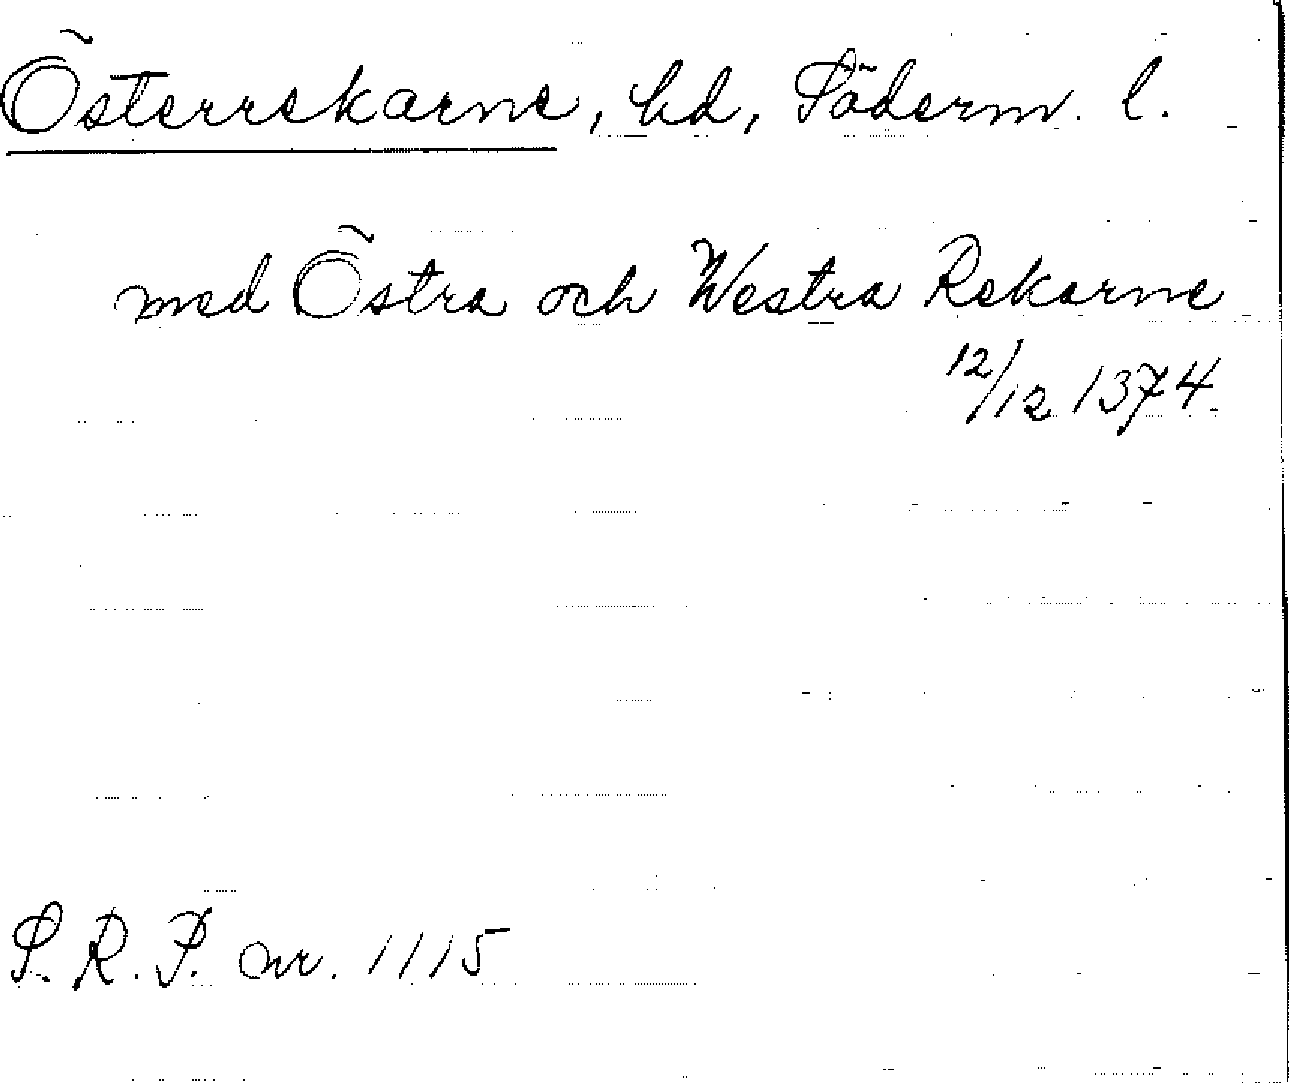 Österrekarne, hd, Söderm. l.
med Östra och Westra Rekarne
12/12 1374.
S. R. P. nr. 1115